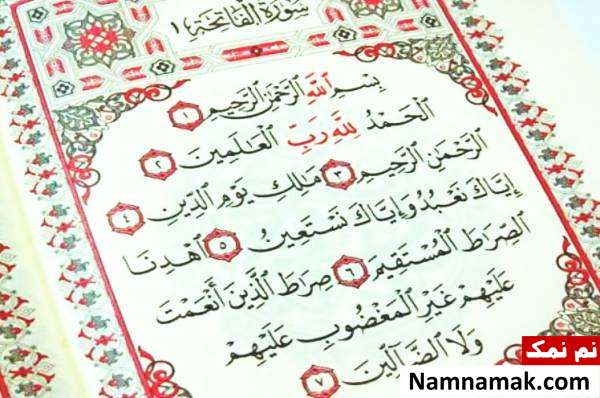 سُورَةُ الْفَاتِحَةِ ١
بِسْمِ اللَّهِ الرَّحْمَٰنِ الرَّحِيمِ ١
الْحَمْدُ لِلَّهِ رَبِّ الْعَالَمِينَ ٢
الرَّحْمَٰنِ الرَّحِيمِ ٣ مَالِكِ يَوْمِ الدِّينِ ٤
إِيَّاكَ نَعْبُدُ وَإِيَّاكَ نَسْتَعِينُ ٥ اهْدِنَا
الصِّرَاطَ الْمُسْتَقِيمَ ٦ صِرَاطَ الَّذِينَ أَنْعَمْتَ
عَلَيْهِمْ غَيْرِ الْمَغْضُوبِ عَلَيْهِمْ
وَلَا الضَّالِّينَ ٧
نم نمک
Namnamak.com